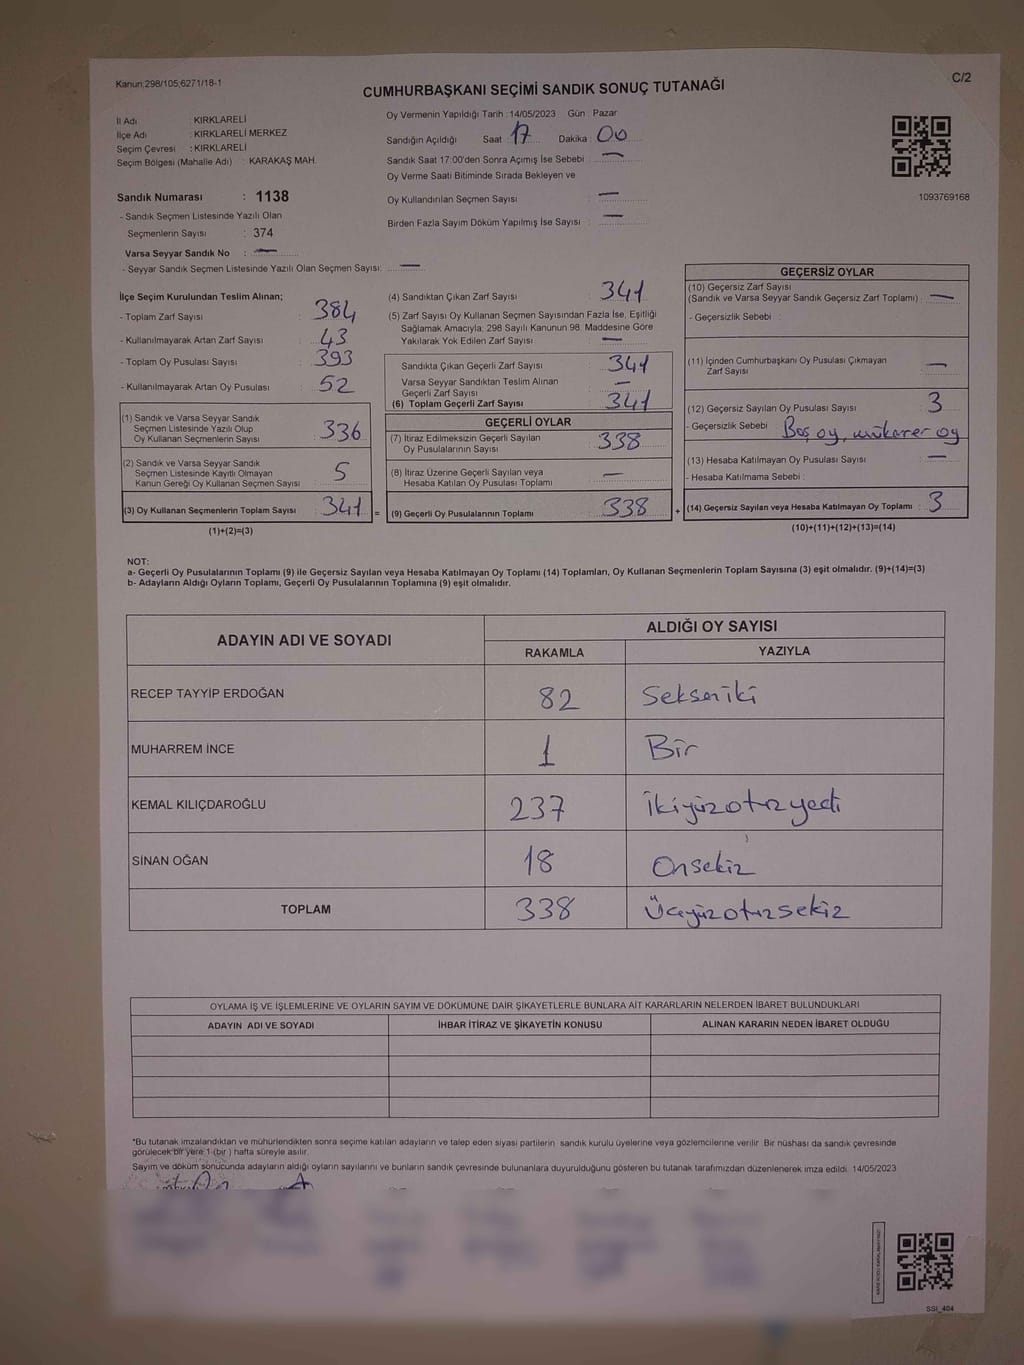 Kanun;298/105;6271/18-1
C/2
CUMHURBAŞKANI SEÇİMİ SANDIK SONUÇ TUTANAĞI
İl Adı : KIRKLARELİ
İlçe Adı : KIRKLARELİ MERKEZ
Seçim Çevresi : KIRKLARELİ
Seçim Bölgesi (Mahalle Adı) : KARAKAŞ MAH.
Sandık Numarası : 1138
- Sandık Seçmen Listesinde Yazılı Olan
Seçmenlerin Sayısı : 374
Varsa Seyyar Sandık No : —
- Seyyar Sandık Seçmen Listesinde Yazılı Olan Seçmen Sayısı: —
Oy Vermenin Yapıldığı Tarih : 14/05/2023 Gün : Pazar
Sandığın Açıldığı Saat : 17 Dakika : 00
Sandık Saat 17:00'den Sonra Açımış İse Sebebi : —
Oy Verme Saati Bitiminde Sırada Bekleyen ve
Oy Kullandırılan Seçmen Sayısı : —
Birden Fazla Sayım Döküm Yapılmış İse Sayısı : —
1093769168
İlçe Seçim Kurulundan Teslim Alınan;
- Toplam Zarf Sayısı : 384
- Kullanılmayarak Artan Zarf Sayısı : 43
- Toplam Oy Pusulası Sayısı : 393
- Kullanılmayarak Artan Oy Pusulası : 52
(1) Sandık ve Varsa Seyyar Sandık
Seçmen Listesinde Yazılı Olup
Oy Kullanan Seçmenlerin Sayısı : 336
(2) Sandık ve Varsa Seyyar Sandık
Seçmen Listesinde Kayıtlı Olmayan
Kanun Gereği Oy Kullanan Seçmen Sayısı : 5
(3) Oy Kullanan Seçmenlerin Toplam Sayısı : 341 =
(1)+(2)=(3)
(4) Sandıktan Çıkan Zarf Sayısı : 341
(5) Zarf Sayısı Oy Kullanan Seçmen Sayısından Fazla İse, Eşitliği
Sağlamak Amacıyla, 298 Sayılı Kanunun 98. Maddesine Göre
Yakılarak Yok Edilen Zarf Sayısı : —
Sandıkta Çıkan Geçerli Zarf Sayısı : 341
Varsa Seyyar Sandıktan Teslim Alınan
Geçerli Zarf Sayısı : —
(6) Toplam Geçerli Zarf Sayısı : 341
GEÇERLİ OYLAR
(7) İtiraz Edilmeksizin Geçerli Sayılan
Oy Pusulalarının Sayısı : 338
(8) İtiraz Üzerine Geçerli Sayılan veya
Hesaba Katılan Oy Pusulası Toplamı : —
(9) Geçerli Oy Pusulalarının Toplamı : 338 +
GEÇERSİZ OYLAR
(10) Geçersiz Zarf Sayısı
(Sandık ve Varsa Seyyar Sandık Geçersiz Zarf Toplamı) : —
- Geçersizlik Sebebi :
(11) İçinden Cumhurbaşkanı Oy Pusulası Çıkmayan
Zarf Sayısı : —
(12) Geçersiz Sayılan Oy Pusulası Sayısı : 3
- Geçersizlik Sebebi : Boş oy, mükerrer oy
(13) Hesaba Katılmayan Oy Pusulası Sayısı : —
- Hesaba Katılmama Sebebi :
(14) Geçersiz Sayılan veya Hesaba Katılmayan Oy Toplamı : 3
(10)+(11)+(12)+(13)=(14)
NOT:
a- Geçerli Oy Pusulalarının Toplamı (9) ile Geçersiz Sayılan veya Hesaba Katılmayan Oy Toplamı (14) Toplamları, Oy Kullanan Seçmenlerin Toplam Sayısına (3) eşit olmalıdır. (9)+(14)=(3)
b- Adayların Aldığı Oyların Toplamı, Geçerli Oy Pusulalarının Toplamına (9) eşit olmalıdır.
ADAYIN ADI VE SOYADI
ALDIĞI OY SAYISI
RAKAMLA YAZIYLA
RECEP TAYYİP ERDOĞAN 82 Seksen iki
MUHARREM İNCE 1 Bir
KEMAL KILIÇDAROĞLU 237 İkiyüzotuzyedi
SİNAN OĞAN 18 Onsekiz
TOPLAM 338 Üçyüzotuzsekiz
OYLAMA İŞ VE İŞLEMLERİNE VE OYLARIN SAYIM VE DÖKÜMÜNE DAİR ŞİKAYETLERLE BUNLARA AİT KARARLARIN NELERDEN İBARET BULUNDUKLARI
ADAYIN ADI VE SOYADI İHBAR İTİRAZ VE ŞİKAYETİN KONUSU ALINAN KARARIN NEDEN İBARET OLDUĞU
*Bu tutanak imzalandıktan ve mühürlendikten sonra seçime katılan adayların ve talep eden siyasi partilerin sandık kurulu üyelerine veya gözlemcilerine verilir. Bir nüshası da sandık çevresinde
görülecek bir yere 1 (bir ) hafta süreyle asılır.
Sayım ve döküm sonucunda adayların aldığı oyların sayılarını ve bunların sandık çevresinde bulunanlara duyurulduğunu gösteren bu tutanak tarafımızdan düzenlenerek imza edildi. 14/05/2023
SSI_404